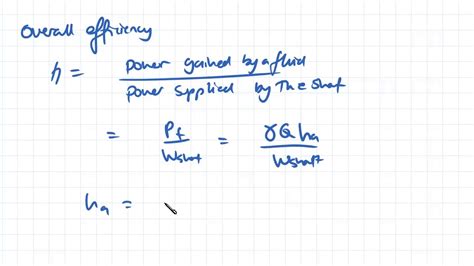 Overall efficiency
η = power gained by a fluid / power supplied by the shaf
= Pf / Wshaft = γQha / Wshaft
ha =